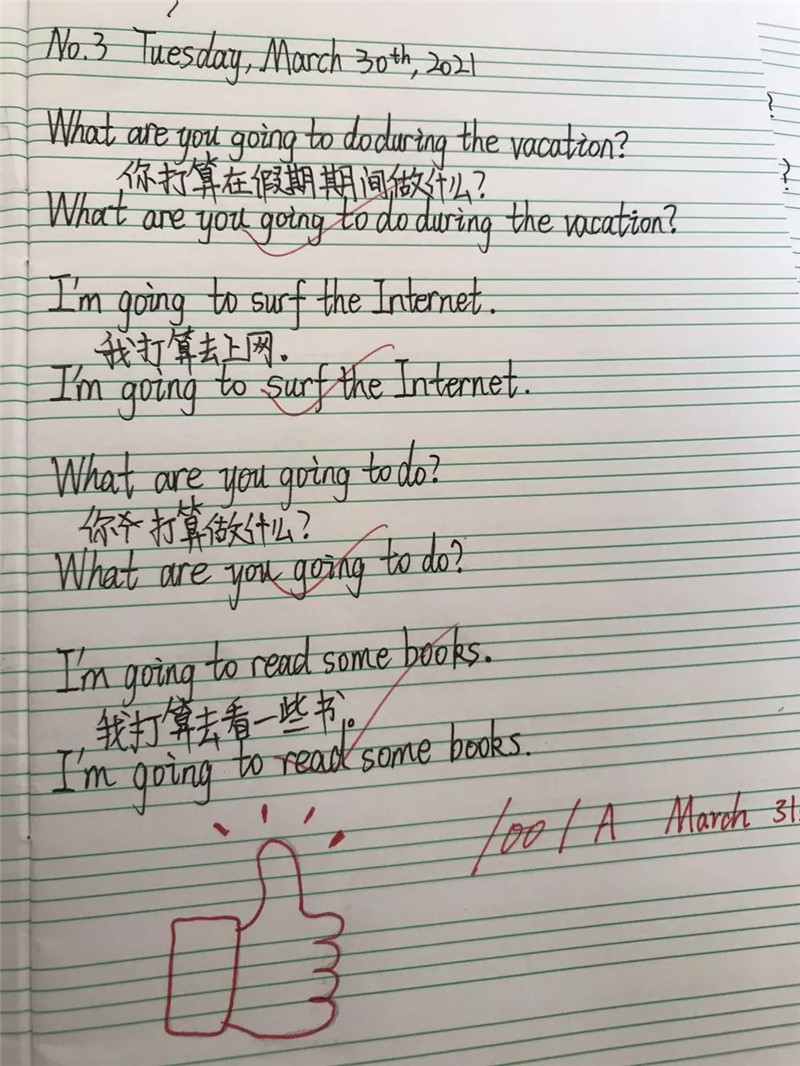 No.3 Tuesday, March 30th, 2021
What are you going to do during the vacation?
你打算在假期期间做什么?
What are you going to do during the vacation?
I'm going to surf the Internet.
我打算去上网。
I'm going to surf the Internet.
What are you going to do?
你打算做什么?
What are you going to do?
I'm going to read some books.
我打算去看一些书。
I'm going to read some books.
100/A March 31